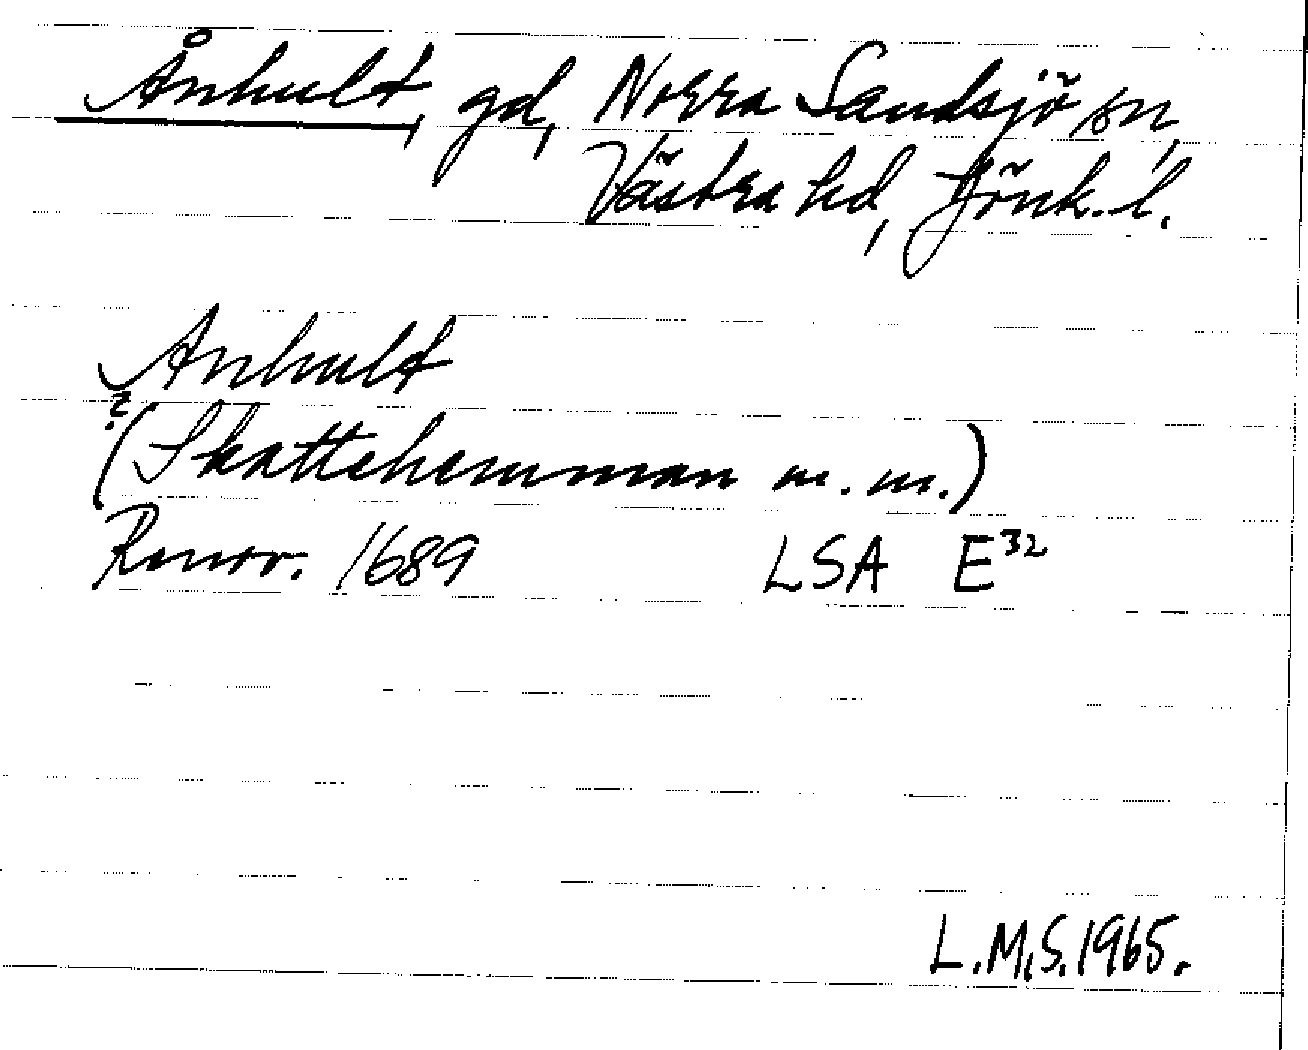 Ånhult, gd, Norra Sandsjö sn,
Västra hd, Jönk. l.
Anhult
?
(Skattehemman m. m.)
Renov. 1689 LSA E³²
L.M.S. 1965.